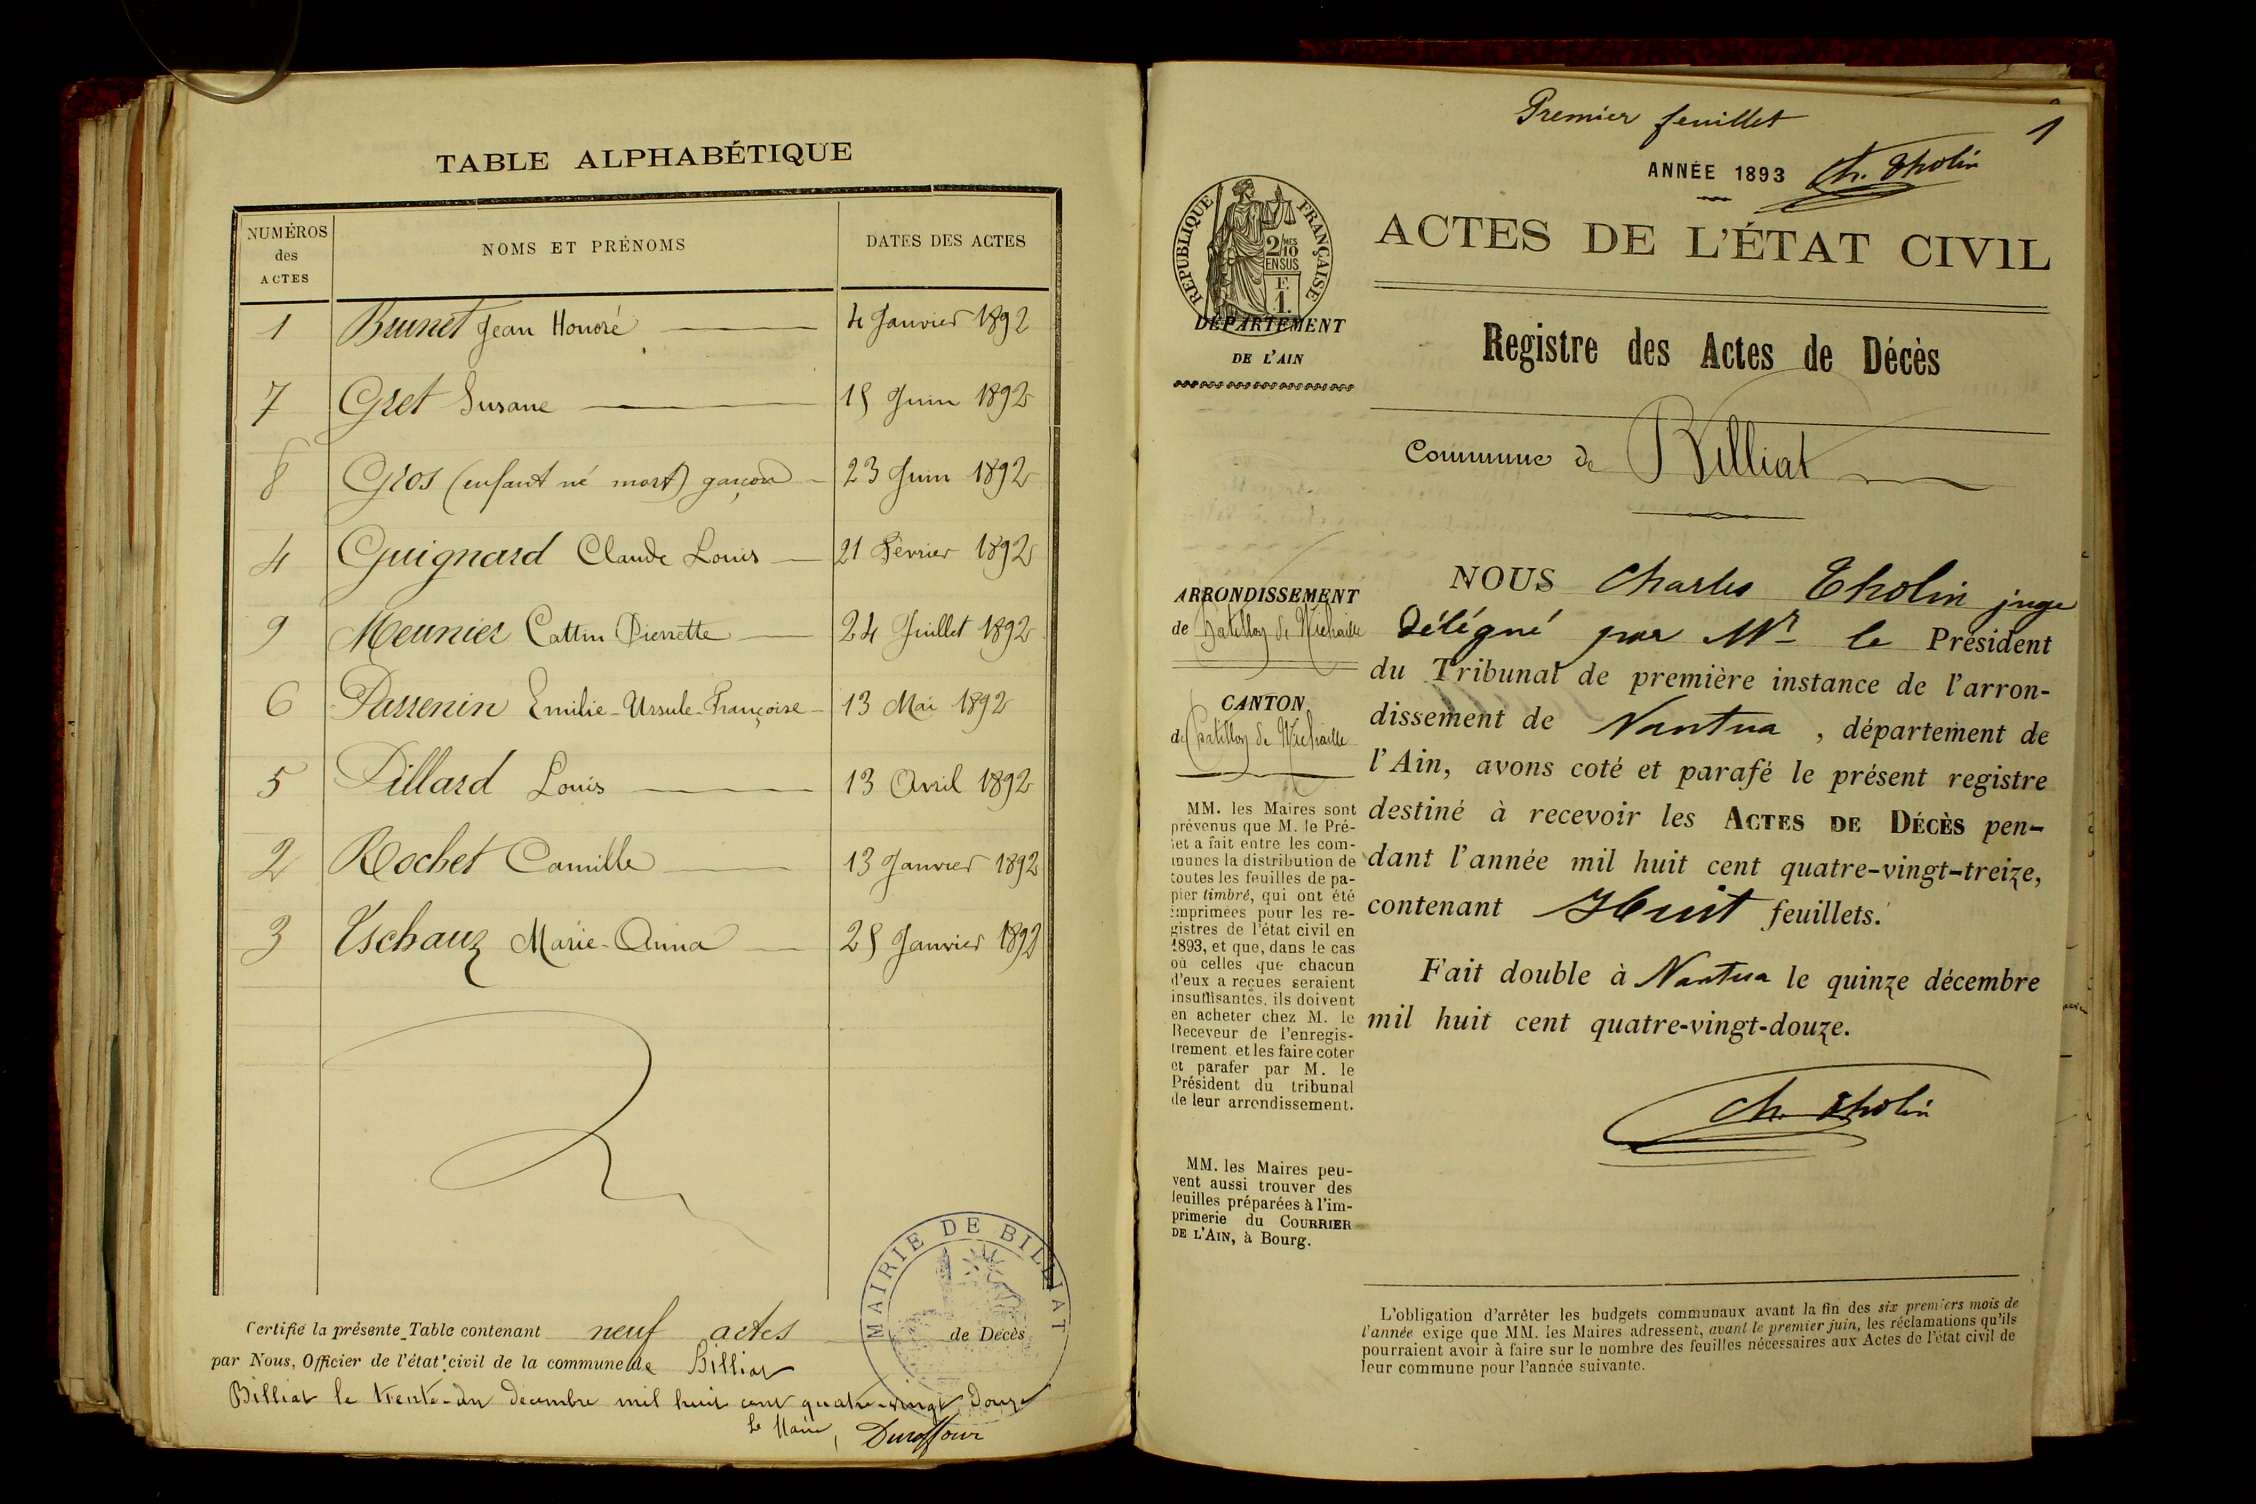 TABLE ALPHABÉTIQUE
NUMÉROS des ACTES NOMS ET PRÉNOMS DATES DES ACTES
1 Brunet Jean Honoré 4 Janvier 1892
7 Gret Susane 15 Juin 1892
8 Gros (enfant né mort) garçon 23 Juin 1892
4 Guignard Claude Louis 21 Février 1892
9 Meunier Cattin Pierrette 24 Juillet 1892
6 Passenin Emilie-Ursule-Françoise 13 Mai 1892
5 Pillard Louis 13 Avril 1892
2 Rochet Camille 13 Janvier 1892
3 Tschauz Marie-Anna 25 Janvier 1892
MAIRIE DE BILLIAT
Certifié la présente Table contenant neuf actes de Décès
par Nous, Officier de l'état civil de la commune de Billiat
Billiat le trente-un décembre mil huit cent quatre-vingt douze
Le Maire,
Premier feuillet
1
ANNÉE 1893 Ch. Tholin
RÉPUBLIQUE FRANÇAISE
2/10 MES
EN SUS
F.
1.
ACTES DE L'ÉTAT CIVIL
DÉPARTEMENT
DE L'AIN
Registre des Actes de Décès
Commune de Billiat
ARRONDISSEMENT
de Chatillon de Michaille
CANTON
de Chatillon de Michaille
MM. les Maires sont
prévenus que M. le Pré-
fet a fait entre les com-
munes la distribution de
toutes les feuilles de pa-
pier timbré, qui ont été
imprimées pour les re-
gistres de l'état civil en
1893, et que, dans le cas
où celles que chacun
d'eux a reçues seraient
insuffisantes, ils doivent
en acheter chez M. le
Receveur de l'enregis-
trement et les faire coter
et parafer par M. le
Président du tribunal
de leur arrondissement.
MM. les Maires peu-
vent aussi trouver des
feuilles préparées à l'im-
primerie du COURRIER
DE L'AIN, à Bourg.
NOUS Charles Tholin juge
délégué par Mr le Président
du Tribunal de première instance de l'arron-
dissement de Nantua, département de
l'Ain, avons coté et parafé le présent registre
destiné à recevoir les ACTES DE DÉCÈS pen-
dant l'année mil huit cent quatre-vingt-treize,
contenant Huit feuillets.
Fait double à Nantua le quinze décembre
mil huit cent quatre-vingt-douze.
Ch. Tholin
L'obligation d'arrêter les budgets communaux avant la fin des six premiers mois de
l'année exige que MM. les Maires adressent, avant le premier juin, les réclamations qu'ils
pourraient avoir à faire sur le nombre des feuilles nécessaires aux Actes de l'état civil de
leur commune pour l'année suivante.